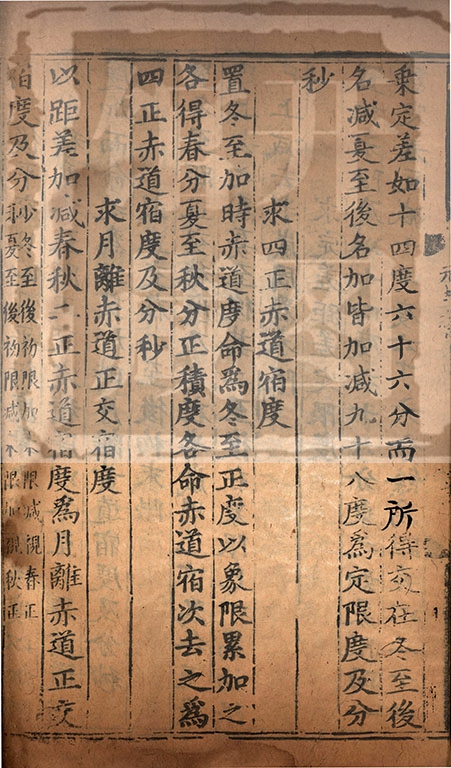 乗定差如十四度六十六分而一所得交在冬至後
名减夏至後名加皆加减九十八度爲定限度及分
秒
求四正赤道宿度
置冬至加時赤道度命爲冬至正度以象限累加之
各得春分夏至秋分正積度各命赤道宿次去之爲
四正赤道宿度及分秒
求月離赤道正交宿度
以距差加减春秋二正赤道宿度爲月離赤道正交
宿度及分秒冬至後初限加末限减視春正
夏至後初限减末限加視秋正